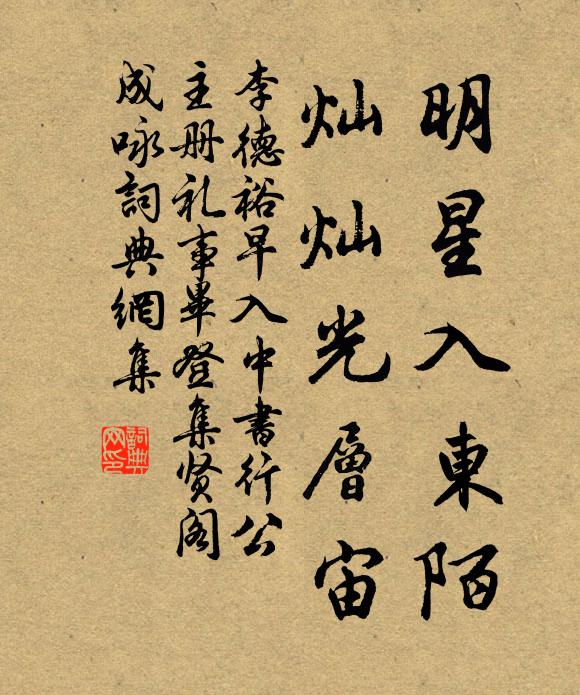 明星入東陌
灿灿光層宙
李德裕早入中書行公
主册礼事畢登集贤阁
成咏詞典網集
詞典
网印